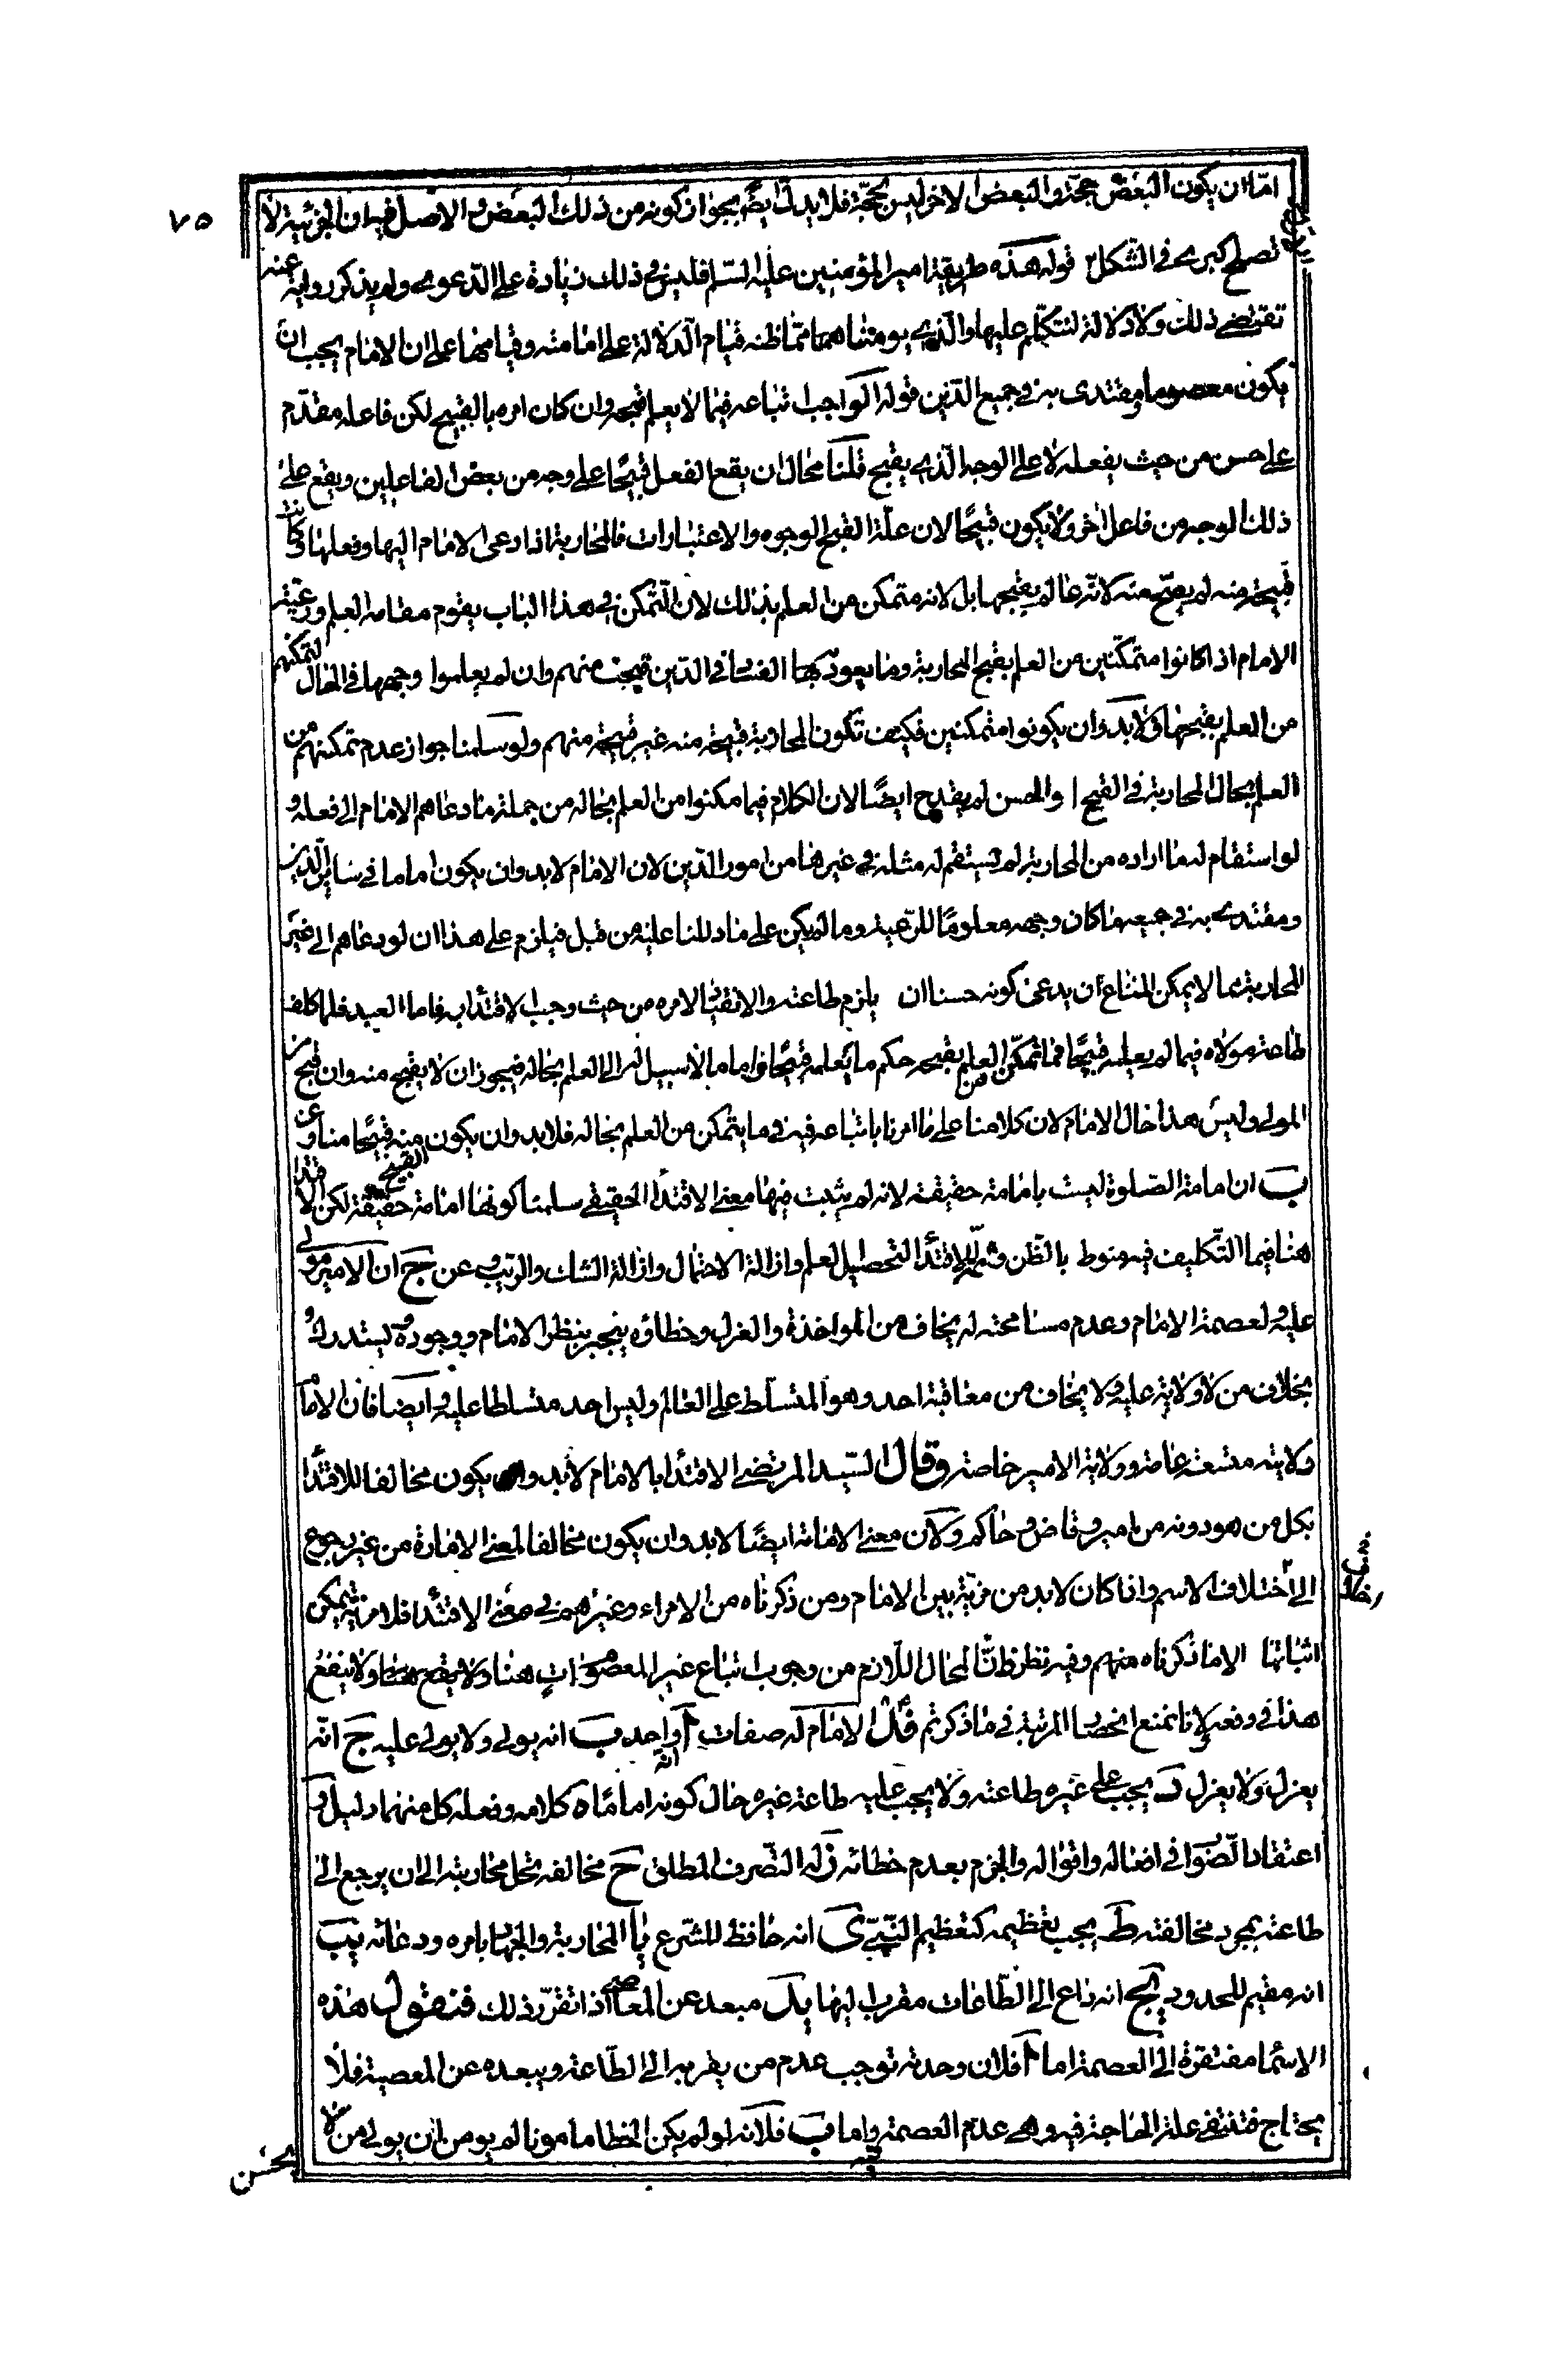 ٧٥
امّا ان يكون البعض حجّة والبعض الاخر ليس بحجّة فلا يدلّ ايضًا بجواز كونه من ذلك البعض والاصل فيه ان الجزئية لا
تصلح كبرى في الشكل قوله هذه طريقة امير المؤمنين عليه السّلم فليس في ذلك زيادة على الدّعوى ولم يذكر رواية عنه
تقتضي ذلك ولا دلالة لنتكلّم عليها والّذي يومننا هما ممّا ظنه قيام الدّلالة على امامته وقيامها على ان الامام يجب ان
يكون معصوما ومقتدى به في جميع الدّين قوله الواجب اتباعه فيما لا يعلم قبحه وان كان امره بالقبيح لكن فاعله مقدّم
على حسن من حيث يفعله لا على الوجه الّذي يقبح قلنا محال ان يقع الفعل قبيحًا على وجه من بعض الفاعلين ويقع على
ذلك الوجه من فاعل اخر ولا يكون قبيحًا لان علّة القبح الوجوه والاعتبارات فالمحاربة اذا دعى الامام اليها وفعلها وكانت
قبيحة منه لم يصحّ منه لانّه عالم بقبحها بل لانه متمكن من العلم بذلك لان التّمكن في هذا الباب يقوم مقام العلم ورعيته
الامام اذا كانوا متمكّنين من العلم بقبح المحاربة وما يعود بها الفساد في الدّين قبحت منهم وان لم يعلموا وجهها في الحال لتمكنهم
من العلم بقبحها ولا بد وان يكونوا متمكنين فكيف تكون المحاربة قبيحة منه غير قبيحة منهم ولو سلمنا جواز عدم تمكنهم من
العلم بحال المحاربة في القبح والحسن لم يقدح ايضًا لان الكلام فيما مكنوا من العلم بحاله من جملة ما دعاهم الامام الى فعله و
لو استقام له ما اراده من المحاربة لم يستقم له مثله في غيرها من امور الدّين لان الامام لا بد وان يكون اماما في سائر الدّين
ومقتدى به في جميعه ما كان وجهه معلومًا للرّعية وما لم يكن على ما دللنا عليه من قبل فيلزم على هذا ان لو دعاهم الى غير
المحاربة مما لا يمكن المتناع ان يدعى كونه حسنا ان يلزم طاعته والانقياد لامره من حيث وجب الاقتداء به فاما العبد فلما كلف
طاعة مولاه فيما لم يعلمه قبيحًا فما تمكّن من العلم بقبحه حكم ما يعلمه قبيحًا واما ما لا سبيل له الى العلم بحاله فيجوز ان لا يقبح منه وان قبح من
المولى وليس هذا حال الامام لان كلامنا على ما امرنا باتباعه فيه في ما يتمكن من العلم بحاله فلا بد وان يكون منه قبيحًا منا وعن
ب ان امامة الصّلوة ليست بامامة حقيقة لانه لم يثبت فيها معنى الاقتداء الحقيقي سلمنا كونها امامة حقيقة لكن الاقتداء
هنا فيما التّكليف فيه منوط بالظّن و الاقتداء لتحصيل العلم وازالة الاحتمال وازالة الشك والريب وعن ج ان الامير مولى
عليه ولعصمة الامام وعدم مسامحته له يخاف من المواخذة والعزل وخطاؤه ينجبر بنظر الامام ووجوده يستدرك
بخلاف من لا ولاية عليه ولا يخاف من معاقبة احد وهو المتسلّط على العالم وليس احد متسلطا عليه وايضا فان الامام
ولايته متسعة عامة وولاية الامير خاصة وقال السّيد المرتضى الاقتداء بالامام لا بد وان يكون مخالفا للاقتداء
بكل من هو دونه من امير وقاض وحاكم ولان معنى الامامة ايضًا لا بد وان يكون مخالفا لمعنى الامارة من غير رجوع
الى اختلاف الاسم واذا كان لا بد من مزية بين الامام ومن ذكرناه من الامراء وغيرهم في معنى الاقتداء فلا مزية يمكن
اثباتها الا ما ذكرناه منهم وفيه نظر فانّ المحال اللازم من وجوب اتباع غير المعصوم ات هنا ولا ينفع
هذا في دفعه لانا نمنع انحصار المرتبة في ما ذكرتم الامام له صفات ا انه واحد ب انه يولى ولا يولى عليه ج انّه
يعزل ولا يعزل د يجب على غيره طاعته ولا يجب عليه طاعة غيره حال كونه اماما ه كلامه وفعله كل منهما دليل و
اعتقاد الصّواب في افعاله واقواله والجزم بعدم خطائه ز له التّصرف المطلق ح مخالفه تحل محاربته الى ان يرجع الى
طاعته بمجرد مخالفته ط يجب تعظيمه كتعظيم النّبيّ ى انه حافظ للشّرع يا المحاربة والجهاد بامره ودعائه يب
انه مقيم للحدود يج انه داع الى الطّاعات مقرب اليها يد مبعد عن المعاصي اذا تقرّر ذلك فنقول هذه
الاشياء مفتقرة الى العصمة اما ا فلان وحدته توجب عدم من يقربه الى الطّاعة ويبعده عن المعصية فلا
يحتاج فتنتفي علة الحاجة فيه وهي عدم العصمة واما ب فلانه لو لم يكن الخطا مامونا لم يومن ان يولى من لا
يحسن